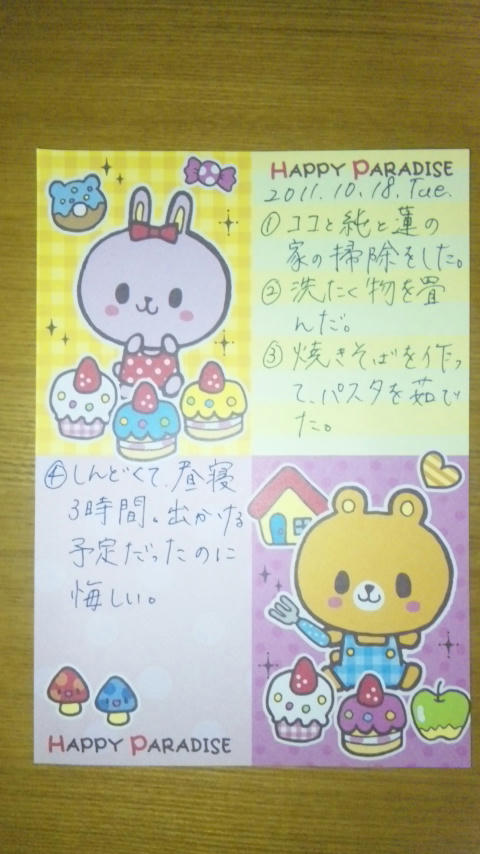 HAPPY PARADISE
2011.10.18.Tue.
①ココと純と蓮の
家の掃除をした。
②洗たく物を畳
んだ。
③焼きそばを作っ
て、パスタを茹で
た。
④しんどくて、昼寝
3時間。出かける
予定だったのに
悔しい。
HAPPY PARADISE